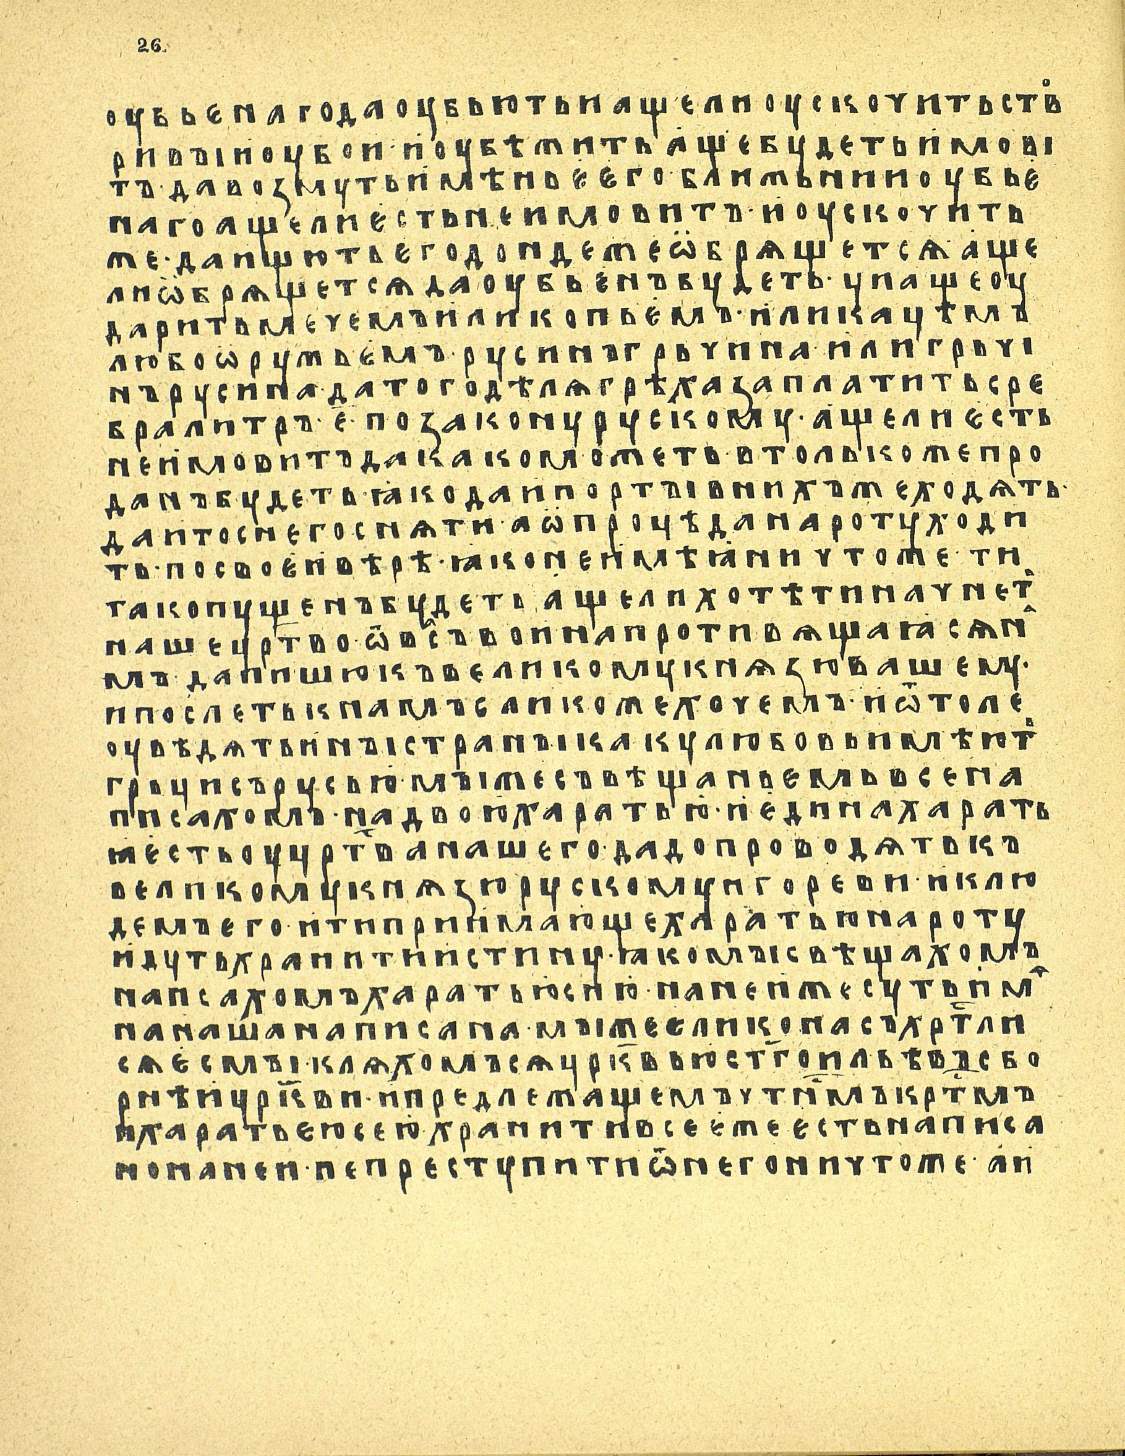 26.
оубьенагодаоубьютьиащелиоускочитьств̊
ривъıиоубои·иоубѣжитьащебудетьимові
тъ·давозмутьимѣньеѥго·ближьнииоубьє
нагоащелиєстьнеимовитъ·иоускочить
же·даищютьегодондежеѡ̈брѧщетсѧаще
лиѡ̈брѧщетсѧдаоубьєнъбудеть·ципащеоу
даритьмечемъиликопьємъ·иликацѣмъ
любоѡ̈ружьємъ·русинъгрьчина·илигрьчі
нърусина·датогодѣлѧгрѣхазаплатитьсре
бралитръ·е҃·позаконурускому·ащелиєсть
неимовитъдакакоможеть·втолькожепро
данъбудеть·ꙗкодаипортъıвнихъжеходѧть·
даитоснегоснѧти·аѡ̈процѣданаротуходи
ть·посвоєивѣрѣ·ꙗконеимѣꙗничтоже·ти
такопущенъбудеть·ащелихотѣтиначнет̑
нашецр҃тво·ѿвас̑ъвоинапротивѧщаꙗсѧн̑
мъ·дапишюкъвеликомукнѧзювашему·
ипослетькнамъєликожехочемъ·иѿтоле
оувѣдѧтьинъıстранъıкакулюбовьимѣют̑
грьцисърусью·мъıжесъвѣщаньємьвсена
писахомъ·надвоюхаратью·иєдинахарать
ꙗєстьоуцр҃тванашего·дадопроводѧтькъ
великомукнѧзюрускомуигореви·иклю
демъего·итиприимающехаратьюнароту
идутьхранитиистину·ꙗкомъıсвѣщахомъ
напсахомъхаратьюсию·нанеижесутьим̑
нанашанаписана·мъıжеєликонасъхр҃тли
сѧєсмъı·клѧхомъсѧцр҃квьюст҃гоильѣвъсбо
рнѣицр҃кви·ипредлежащемъчт҃нъıмъкр҃тмъ
ихаратьєюсею·хранитивсеєжеєстьнаписа
нонанеи·непреступитиѿнегоничтоже·аи